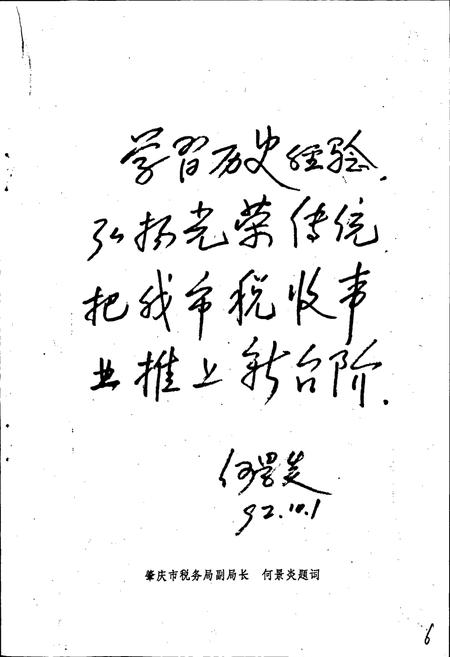 学习历史经验.
弘扬光荣传统
把我市税收事
业推上新台阶.
何景炎
92.10.1
肇庆市税务局副局长 何景炎题词
6